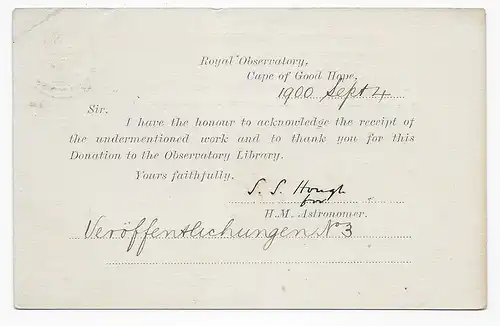 Royal Observatory,
Cape of Good Hope,
1900 Sept 4
Sir.
I have the honour to acknowledge the receipt of
the undermentioned work and to thank you for this
Donation to the Observatory Library.
Yours faithfully.
S. S. Hough
for
H.M. Astronomer.
Veröffentlichungen No 3